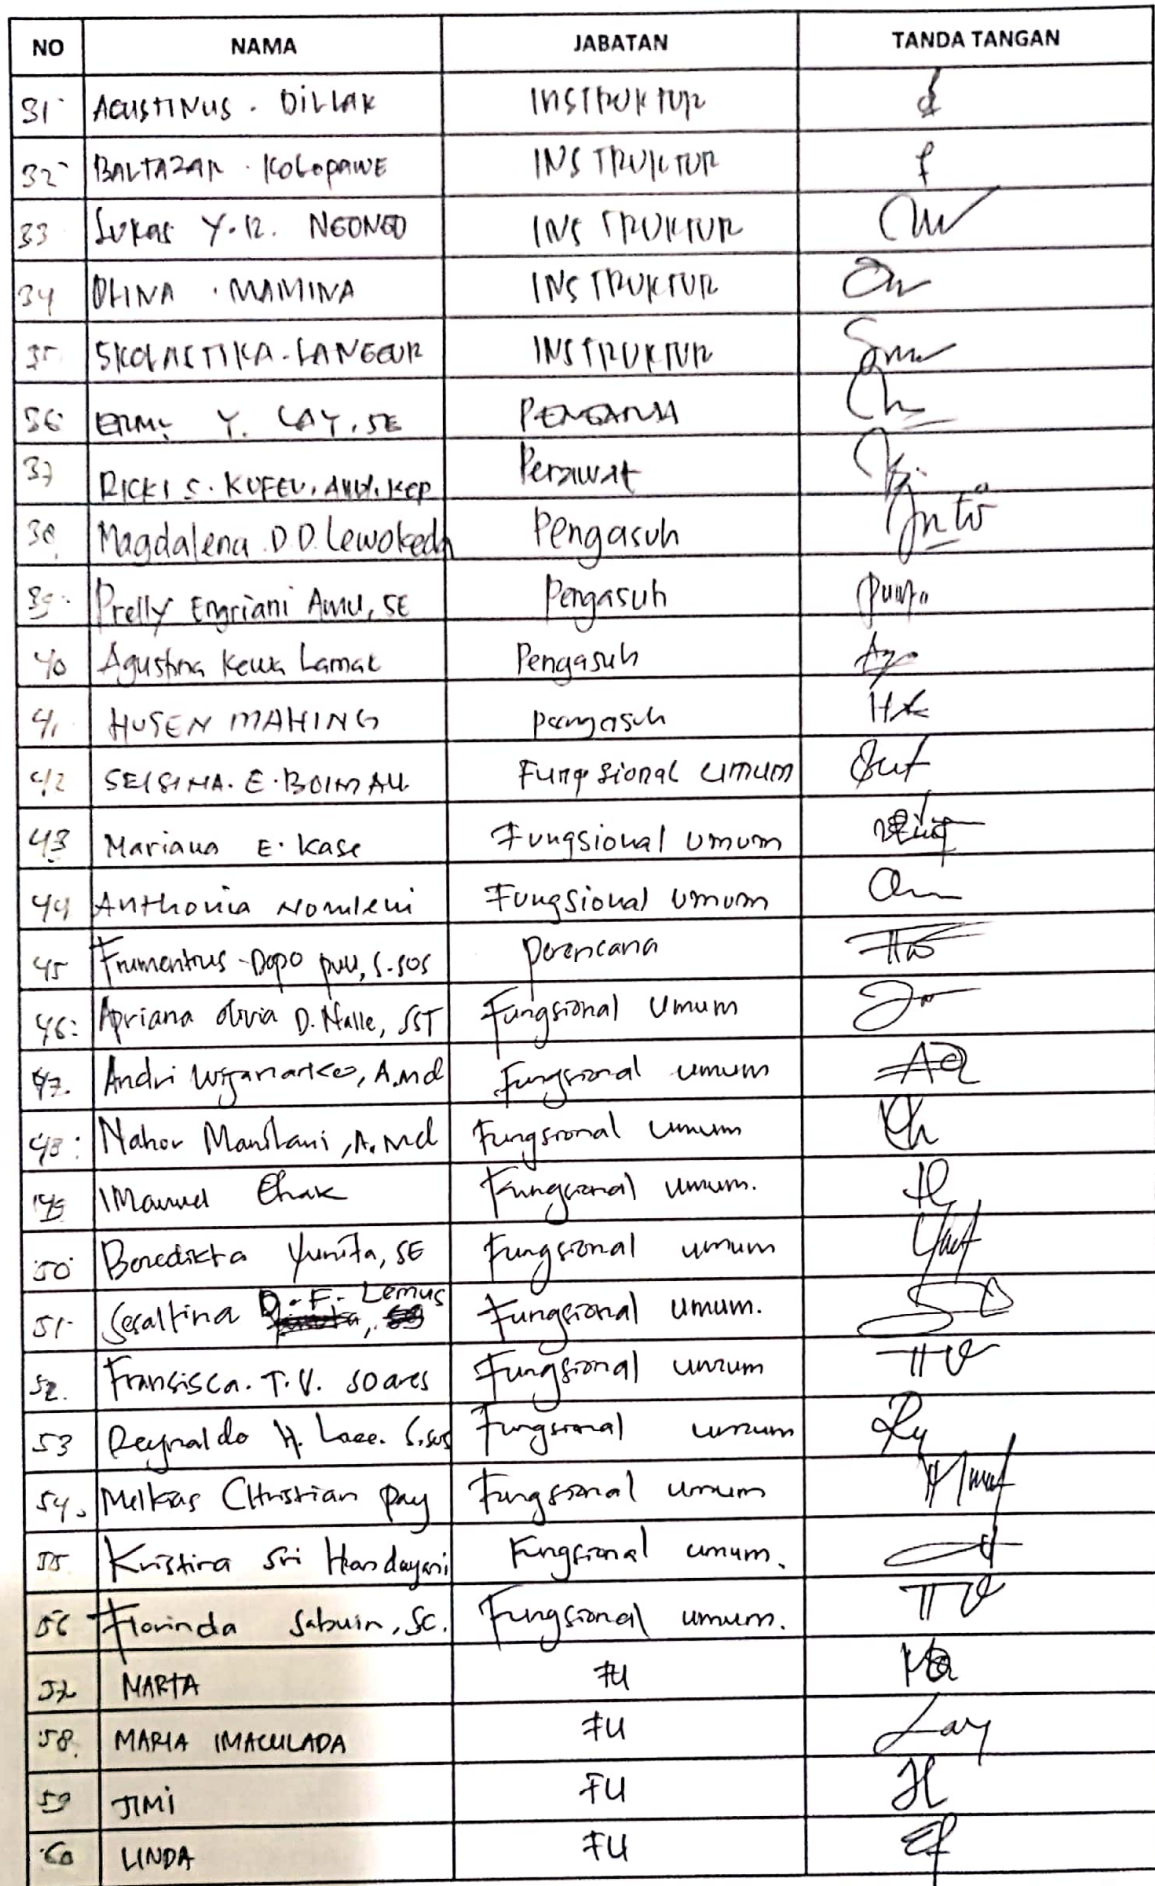 NO NAMA JABATAN TANDA TANGAN
31 AGUSTINUS . DILLAK INSTRUKTUR
32 BALTAZAR . KOLOPAWE INSTRUKTUR
33 Lukas Y.R. NEONGO INSTRUKTUR
34 OLINA . MAMINA INSTRUKTUR
35 SKOLASTIKA . LANGEUR INSTRUKTUR
36 ERMY Y. LAY, SE
37 RICKI S. KUFEU, AMd. KEP Perawat
38 Magdalena D.D. Lewokeda Pengasuh
39 Prelly Engriani Amu, SE Pengasuh
40 Agustina Kewa Lamak Pengasuh
41 HUSEN MAHING pengasuh
42 SELSINA. E. BOIMAU Fungsional umum
43 Mariana E. Kase Fungsional umum
44 Anthonia Nomleni Fungsional umum
45 Frumentius Dopo S.Sos perencana
46. Apriana olivia D. Nalle, SST Fungsional Umum
47. Andri Wijanarko, A.md Fungsional umum
48. Nahor Manilani, A.Md Fungsional umum
49 Imanuel Fungsional umum.
50 Benedikta Yunita, SE Fungsional umum
51. Sesaltina D. F. Lemus Fungsional umum.
52. Fransisca. T. V. Soares Fungsional umum
53 Reynaldo H. S.sos Fungsional umum
54. Melkias Christian Pay Fungsional umum
55. Kristina Sri Handayani Fungsional umum.
56 Florinda Sabuin, Fungsional umum.
57 MARTA FU
58. MARIA IMACULADA FU
59 JIMI FU
60 LINDA FU